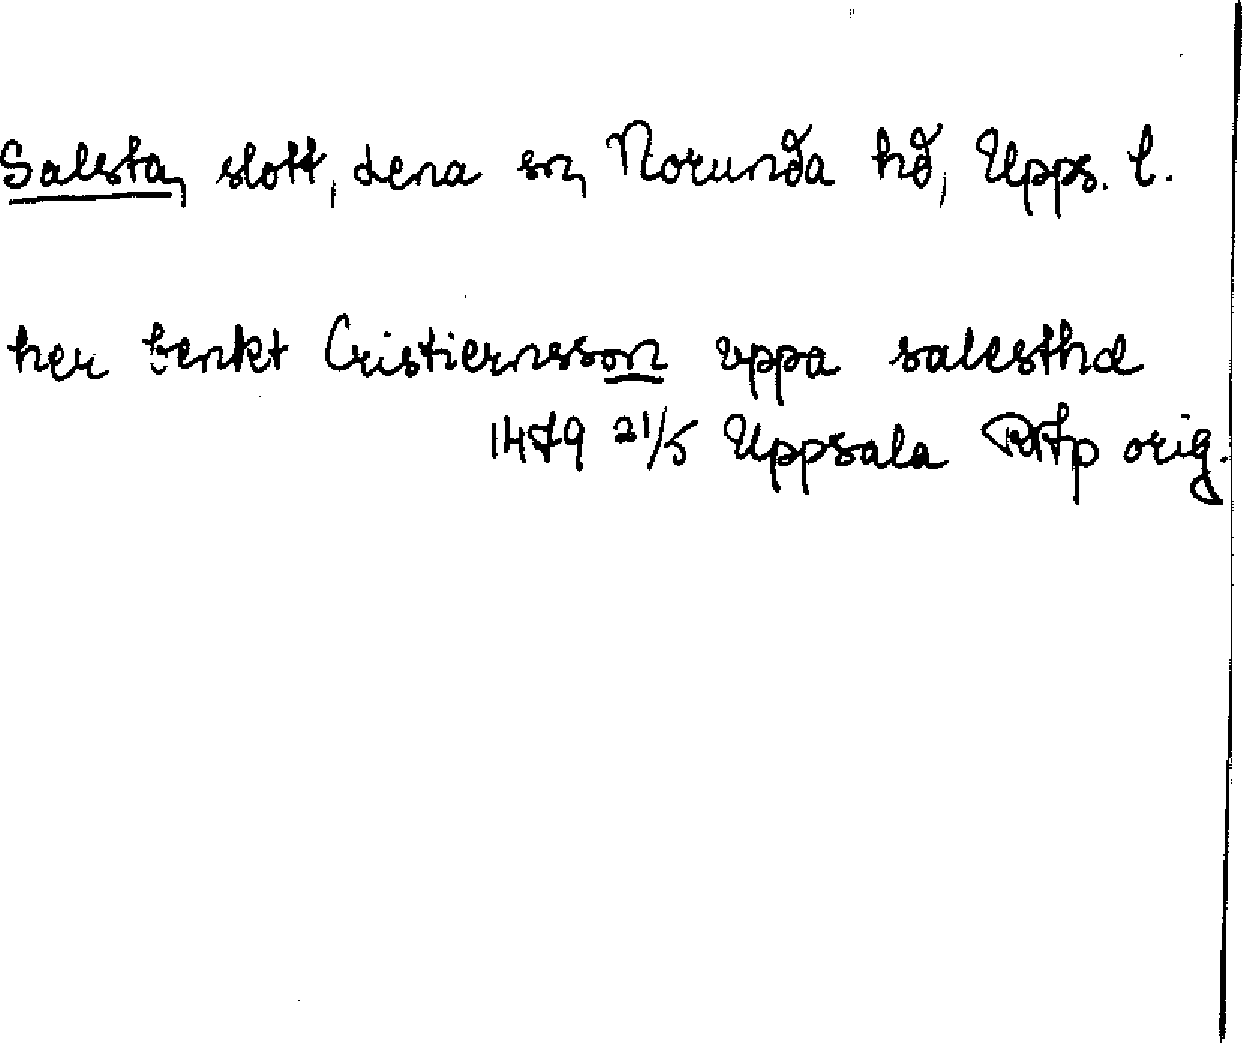 Salsta, slott, Lena sn, Norunda hd, Upps. l.
her benkt Cristiernsson uppa salestha
1479 21/5 Uppsala RAp orig.